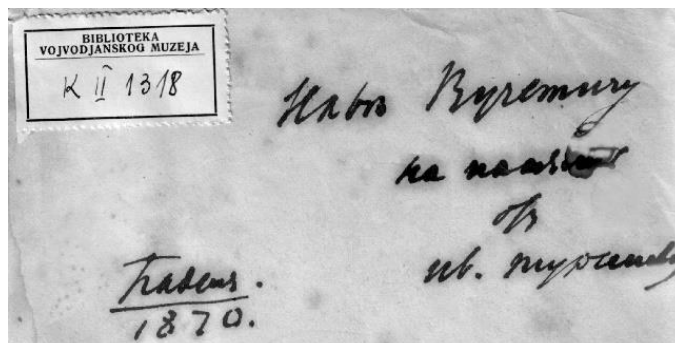 BIBLIOTEKA
VOJVODJANSKOG MUZEJA
K II 1318
Ильѣ Вучетичу
на память
отъ
Ив. Тургенева
Баденъ.
1870.